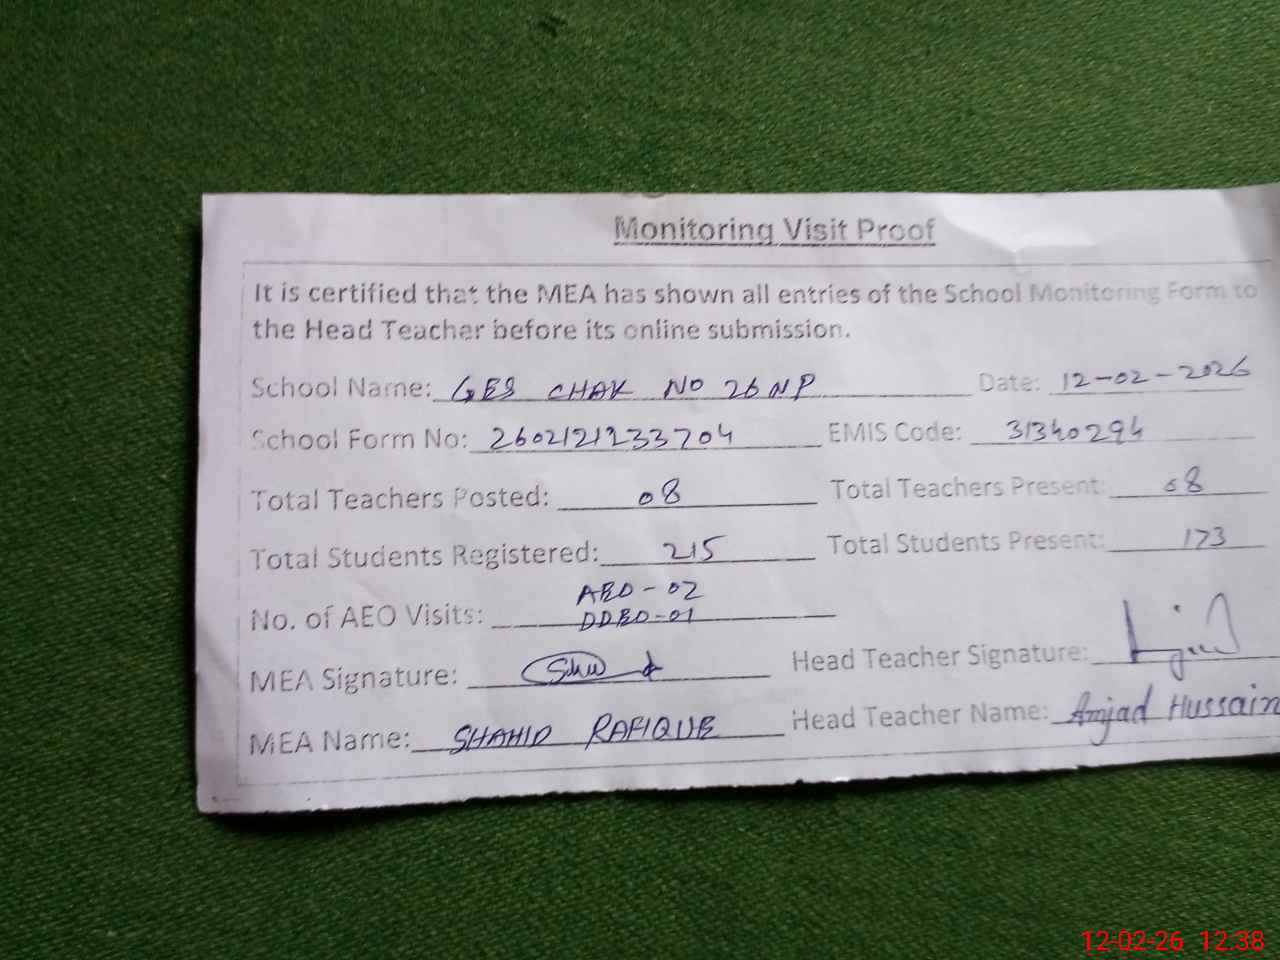 Monitoring Visit Proof
It is certified that the MEA has shown all entries of the School Monitoring Form to
the Head Teacher before its online submission.
School Name: GES CHAK NO 26 NP Date: 12-02-2026
School Form No: 2602121233704 EMIS Code: 31340294
Total Teachers Posted: 08 Total Teachers Present: 08
Total Students Registered: 215 Total Students Present: 173
AEO-02
No. of AEO Visits: DDEO-01
MEA Signature: Head Teacher Signature:
MEA Name: SHAHID RAFIQUE Head Teacher Name: Amjad Hussain
12-02-26 12:38